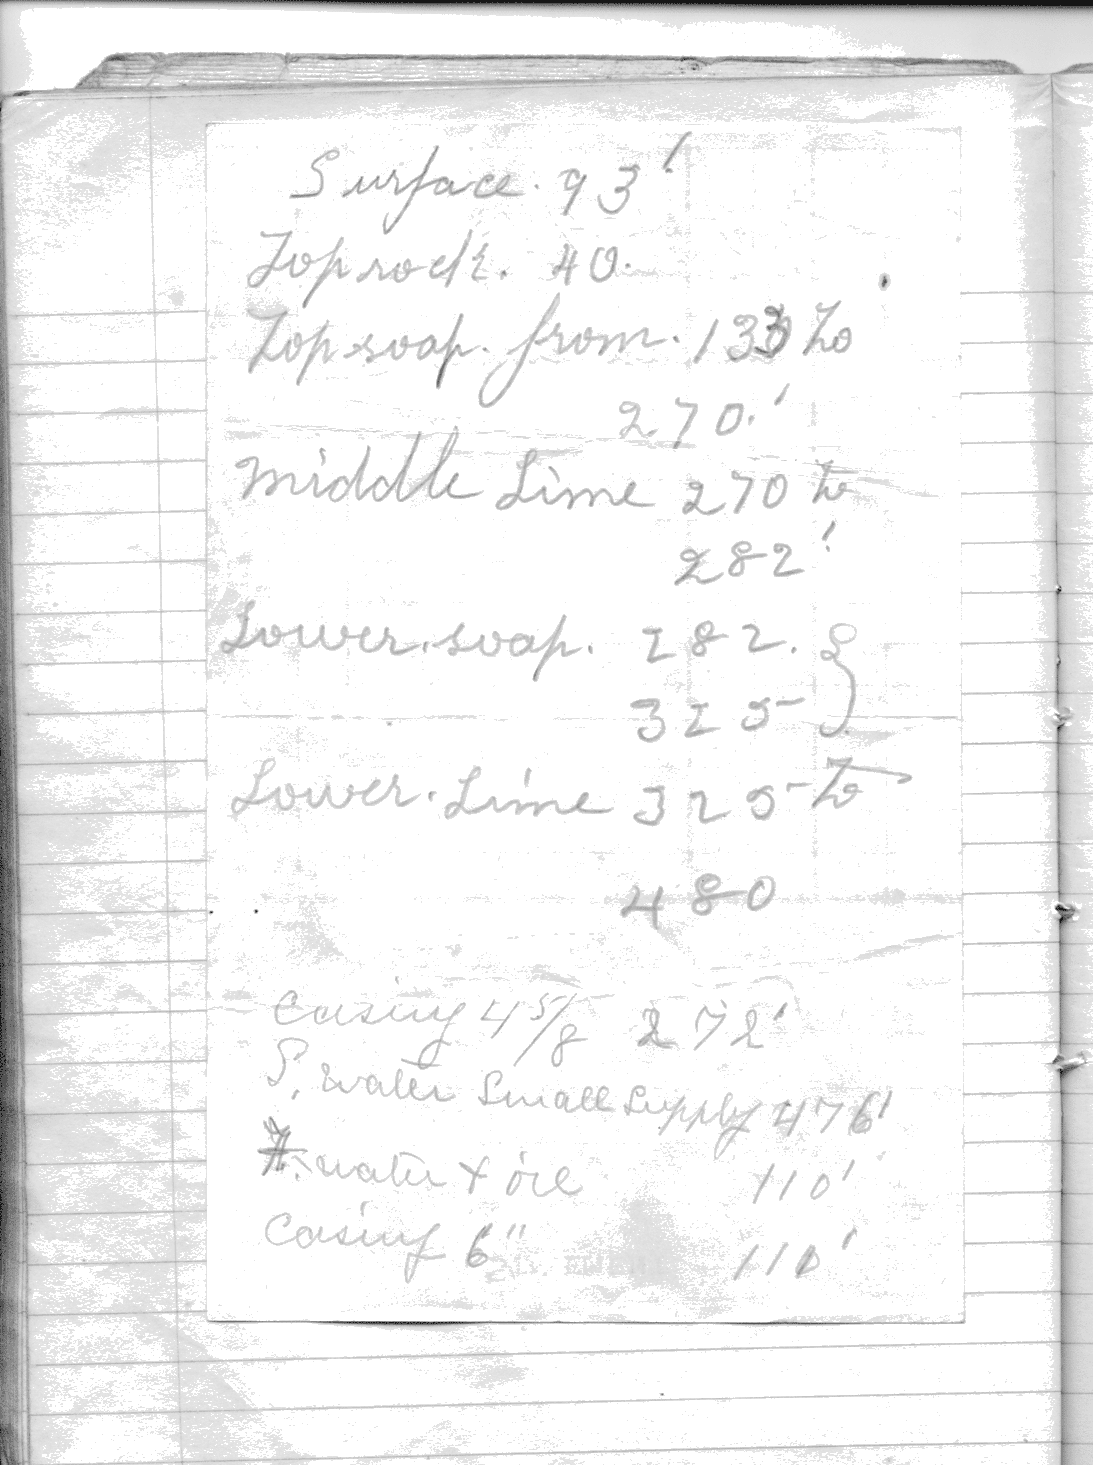 Surface. 93'
Top rock. 40.
Top soap. from. 133 to
270.'
Middle Lime 270 to
282'
Lower. soap. 282. }
325
Lower. Lime 325 to
480
Casing 4 5/8 272'
S. water Small Supply 476'
water + oil 110'
Casing 6" 110'